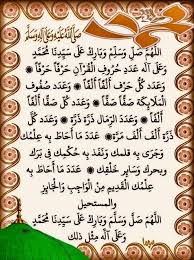 محمد
صلى الله عليه وعلى آله وسلم
اللَّهُمَّ صَلِّ وَسَلِّمْ وَبَارِكْ عَلَى سَيِّدِنَا مُحَمَّدٍ
وَعَلَى آلِهِ عَدَدَ حُرُوفِ الْقُرْآنِ حَرْفًا حَرْفًا
وَعَدَدَ كُلِّ حَرْفٍ أَلْفًا أَلْفًا وَعَدَدَ صُفُوفِ
الْمَلَائِكَةِ صَفًّا صَفًّا وَعَدَدَ كُلِّ صَفٍّ أَلْفًا
أَلْفًا وَعَدَدَ الرِّمَالِ ذَرَّةً ذَرَّةً وَعَدَدَ كُلِّ
ذَرَّةٍ أَلْفَ أَلْفَ مَرَّةٍ عَدَدَ مَا أَحَاطَ بِهِ عِلْمُكَ
وَجَرَى بِهِ قَلَمُكَ وَنَفَذَ بِهِ حُكْمُكَ فِي بَرِّكَ
وبحرك وَسَايِرِ خَلْقِكَ عَدَدَ مَا أَحَاطَ بِهِ
عِلْمُكَ الْقَدِيمُ مِنَ الْوَاجِبِ وَالْجَايِزِ
والمستحيل
اللَّهُمَّ صَلِّ وَسَلِّمْ وَبَارِكْ عَلَى سَيِّدِنَا مُحَمَّدٍ
وَعَلَى آلِهِ مِثْلَ ذَلِكَ